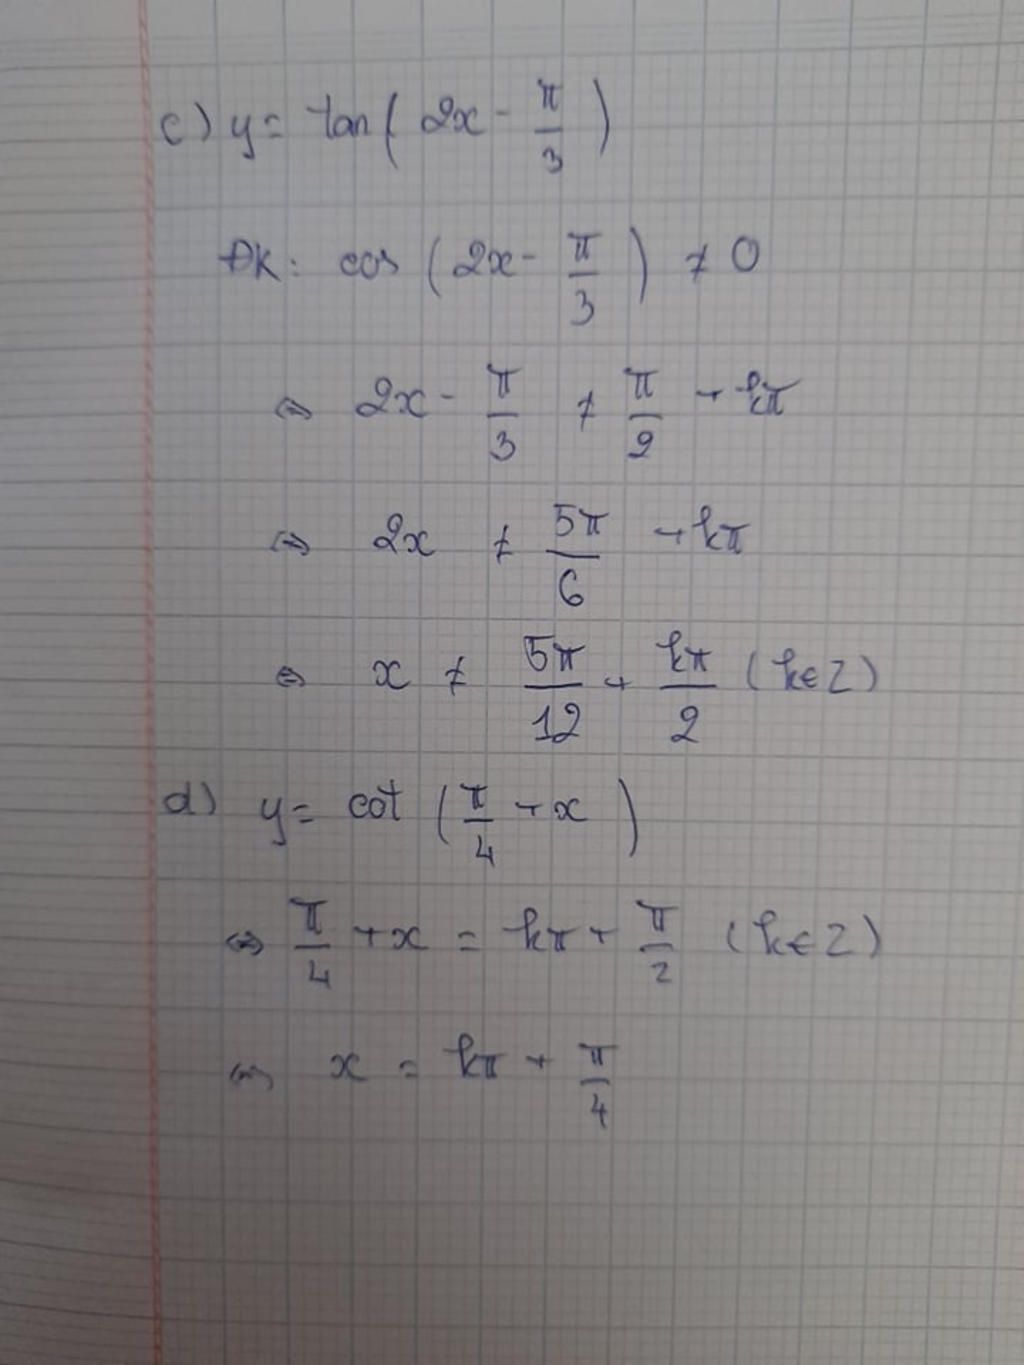 c) y = tan( 2x - π/3 )
ĐK: cos ( 2x - π/3 ) ≠ 0
⇔ 2x - π/3 ≠ π/2 + kπ
⇔ 2x ≠ 5π/6 + kπ
⇔ x ≠ 5π/12 + kπ/2 ( k∈Z )
d) y = cot ( π/4 + x )
⇔ π/4 + x = kπ + π/2 ( k∈Z )
⇔ x = kπ + π/4